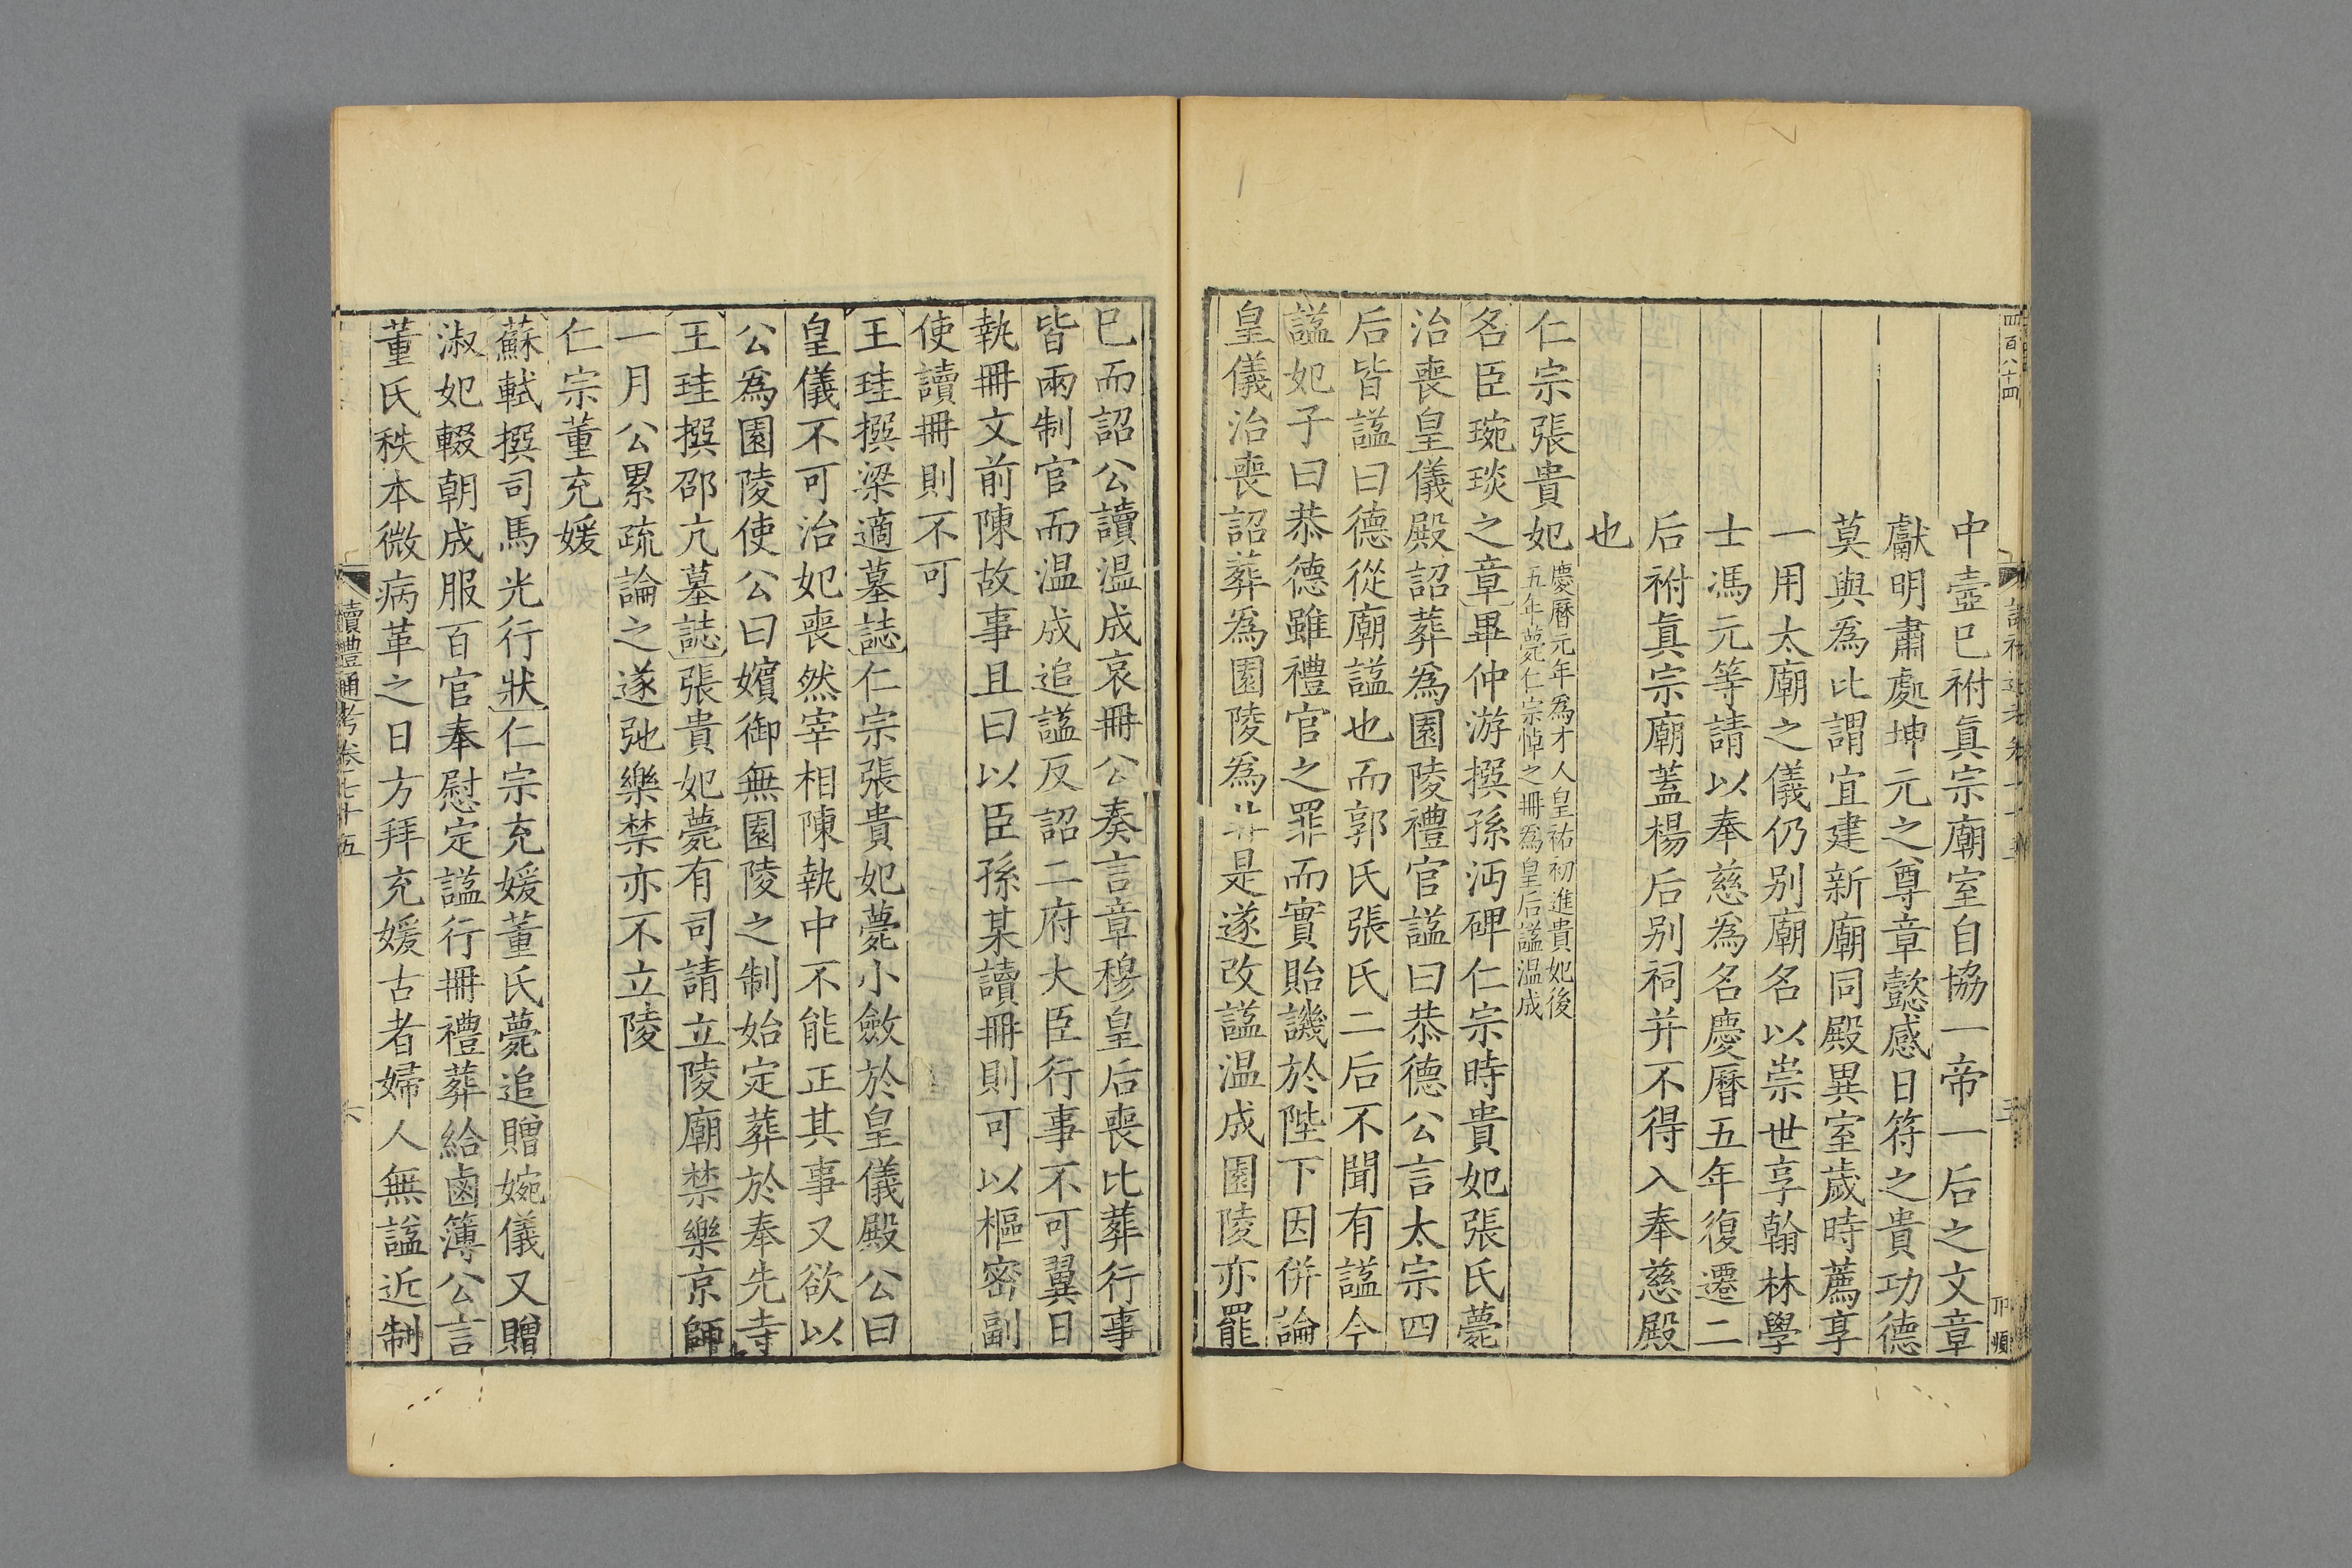 四百八十四
中壼已祔眞宗廟室自協一帝一后之文章
獻明肅處坤元之尊章懿感日符之貴功德
莫與爲比謂宜建新廟同殿異室歲時薦享
一用太廟之儀仍别廟名以崇世享翰林學
士馮元等請以奉慈爲名慶曆五年復遷二
后祔眞宗廟蓋楊后别祠并不得入奉慈殿
也
仁宗張貴妃
慶曆元年爲才人皇祐初進貴妃後
五年薨仁宗悼之冊爲皇后諡温成
名臣琬琰之章畢仲游撰孫沔碑仁宗時貴妃張氏薨
治喪皇儀殿詔葬爲園陵禮官諡曰恭德公言太宗四
后皆諡曰德從廟諡也而郭氏張氏二后不聞有諡今
諡妃子曰恭德雖禮官之罪而實貽譏於陛下因併論
皇儀治喪詔葬爲園陵爲非是遂改諡温成園陵亦罷
已而詔公讀温成哀冊公奏言章穆皇后喪比葬行事
皆兩制官而温成追諡反詔二府大臣行事不可翼日
執冊文前陳故事且曰以臣孫某讀冊則可以樞密副
使讀冊則不可
王珪撰梁適墓誌仁宗張貴妃薨小斂於皇儀殿公曰
皇儀不可治妃喪然宰相陳執中不能正其事又欲以
公爲園陵使公曰嬪御無園陵之制始定葬於奉先寺
王珪撰邵亢墓誌張貴妃薨有司請立陵廟禁樂京師
一月公累疏論之遂弛樂禁亦不立陵
仁宗董充媛
蘇軾撰司馬光行狀仁宗充媛董氏薨追贈婉儀又贈
淑妃輟朝成服百官奉慰定諡行冊禮葬給鹵簿公言
董氏秩本微病革之日方拜充媛古者婦人無諡近制
讀禮通考卷七十五
六